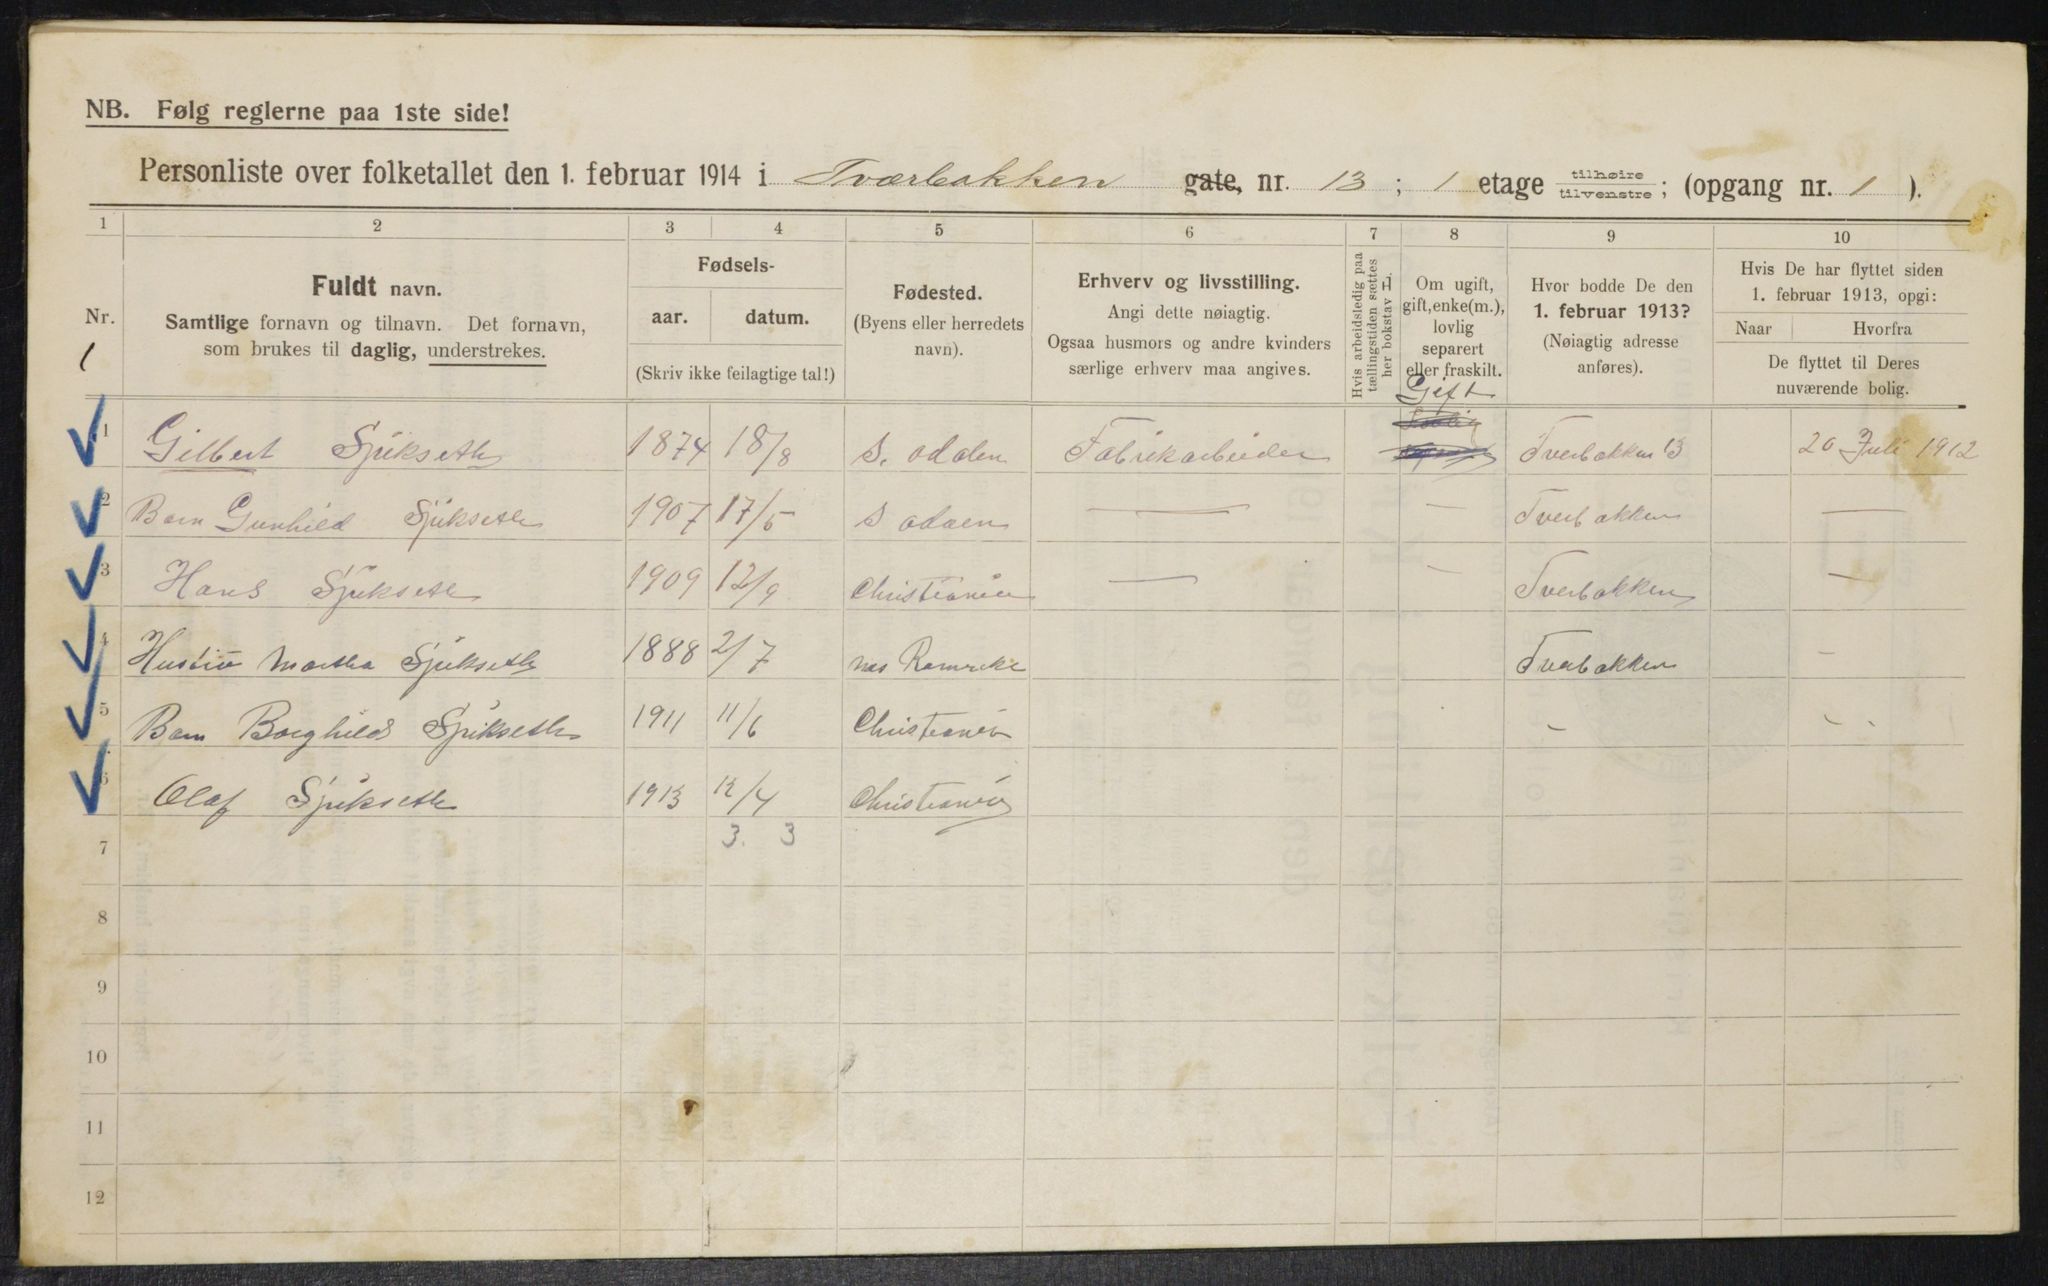 NB. Følg reglerne paa 1ste side!
Personliste over folketallet den 1. februar 1914 i Tværbakken gate, nr. 13 ; 1 etage tilhøire tilvenstre; (opgang nr. 1 ).
1 2 3 4 5 6 7 8 9 10
Nr. 1
Fuldt navn.
Samtlige fornavn og tilnavn. Det fornavn,
som brukes til daglig, understrekes.
Fødsels-
aar. datum.
(Skriv ikke feilagtige tal!)
Fødested.
(Byens eller herredets
navn).
Erhverv og livsstilling.
Angi dette nøiagtig.
Ogsaa husmors og andre kvinders
særlige erhverv maa angives.
Hvis arbeidsledig paa
tællingstiden sættes
her bokstav L.
Om ugift,
gift, enke(m.),
lovlig
separert
eller fraskilt.
Hvor bodde De den
1. februar 1913?
(Nøiagtig adresse
anføres).
Hvis De har flyttet siden
1. februar 1913, opgi:
Naar Hvorfra
De flyttet til Deres
nuværende bolig.
1 Gilbert Sjükseth 1874 18/8 S. odalen Fabrikarbeider Gift Tverbakken 13 20 Juli 1912
2 Barn Gunhild Sjükseth 1907 17/5 S odalen — — Tverbakken —
3 Hans Sjükseth 1909 12/9 Christiania — — Tverbakken —
4 Hustru Martha Sjükseth 1888 2/7 nes Romerike Tverbakken —
5 Barn Borghild Sjükseth 1911 11/6 Christiania — —
6 Olaf Sjükseth 1913 12/4 Christiania
7 3. 3
8
9
10
11
12